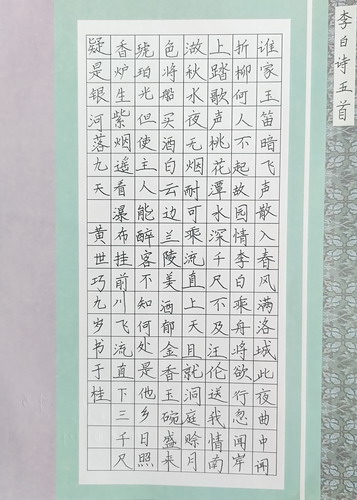 李白诗五首
谁家玉笛暗飞声散入春风满洛城此夜曲中闻
折柳何人不起故园情李白乘舟将欲行忽闻岸
上踏歌声桃花潭水深千尺不及汪伦送我情南
湖秋水夜无烟耐可乘流直上天且就洞庭赊月
色将船买酒白云边兰陵美酒郁金香玉碗盛来
琥珀光但使主人能醉客不知何处是他乡日照
香炉生紫烟遥看瀑布挂前川飞流直下三千尺
疑是银河落九天 黄世巧九岁书于桂